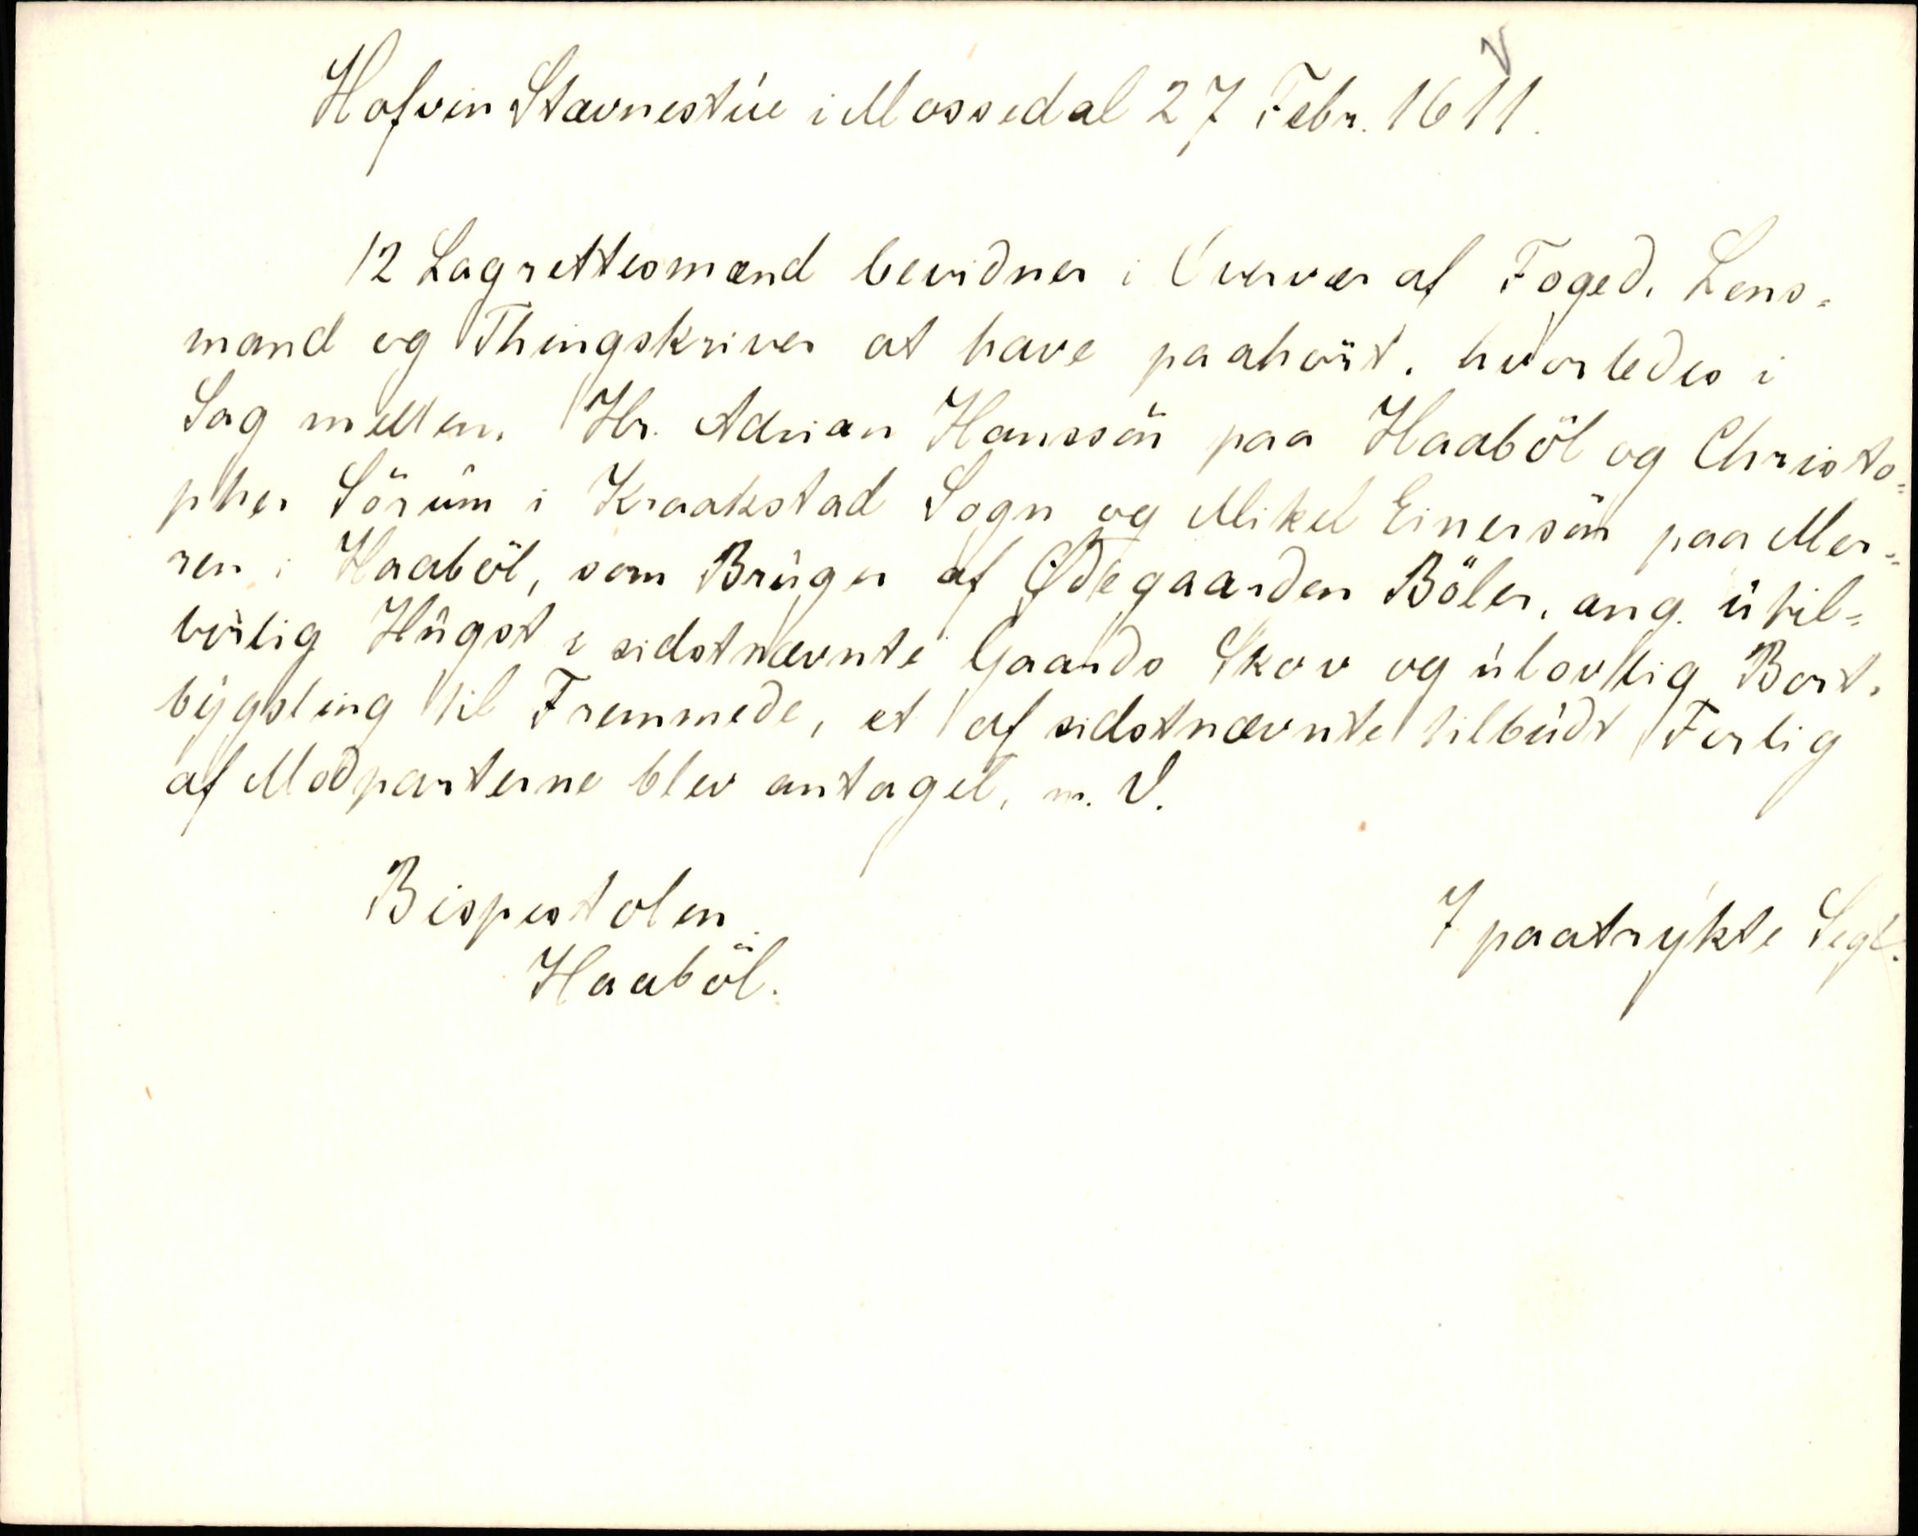 Hofvin Stævnestue i Mossedal 27 Febr. 1611.
12 Lagrettesmænd bevidner i Overvær af Foged, Lens-
mand og Thingskriver at have paahört, hvorledes i
Sag mellem Hr. Adrian Hanssön paa Haaböl og Christo-
pher Sörum i Kraakstad Sogn og Mikel Einersön paa Mer-
ren i Haaböl, som Bruger af Ødegaarden Böler, ang. util-
börlig Hugst i sidstnævnte Gaards Skov og ulovlig Bort-
bygsling til Fremmede, et af sidstnævnte tilbudt Forlig
af Modparterne blev antaget, m. V.
Bispestolen
Haaböl.
7 paatrykte Segl.